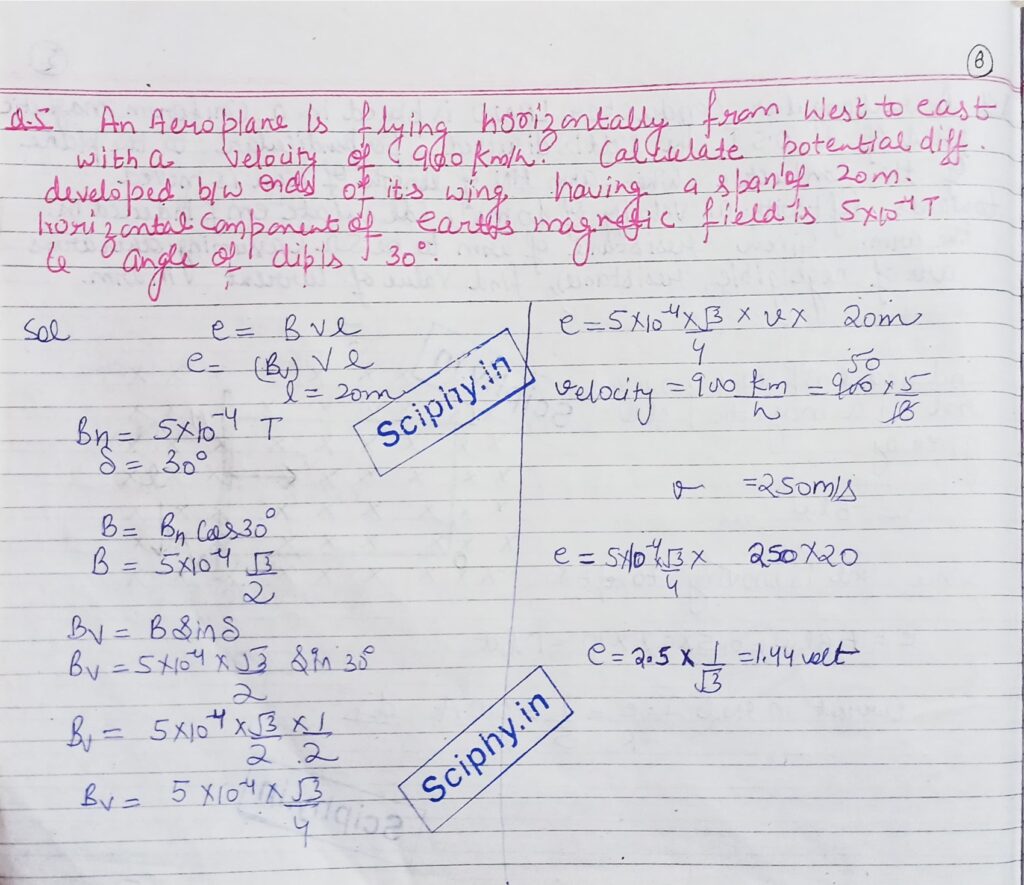 8
Q.5 An Aeroplane is flying horizontally from West to east
with a velocity of 900 km/h. Calculate potential diff.
developed b/w ends of it's wing having a span of 20m.
horizontal Component of earth's magnetic field is 5×10⁻⁴ T
& angle of dip is 30°.
Sol e = B v l
e = (Bv) V l
l = 20m
Bh = 5×10⁻⁴ T
δ = 30°
B = Bh Cos30°
B = 5×10⁻⁴ √3/2
Bv = B Sin δ
Bv = 5×10⁻⁴ × √3/2 Sin 30°
Bv = 5×10⁻⁴ × √3/2 × 1/2
Bv = 5×10⁻⁴ × √3/4
e = 5×10⁻⁴ × √3/4 × v × 20m
50
velocity = 900 km/h = 900 × 5/18
v = 250m/s
e = 5×10⁻⁴ √3/4 × 250×20
e = 2.5 × 1/√3 = 1.44 volt
Sciphy.in
Sciphy.in